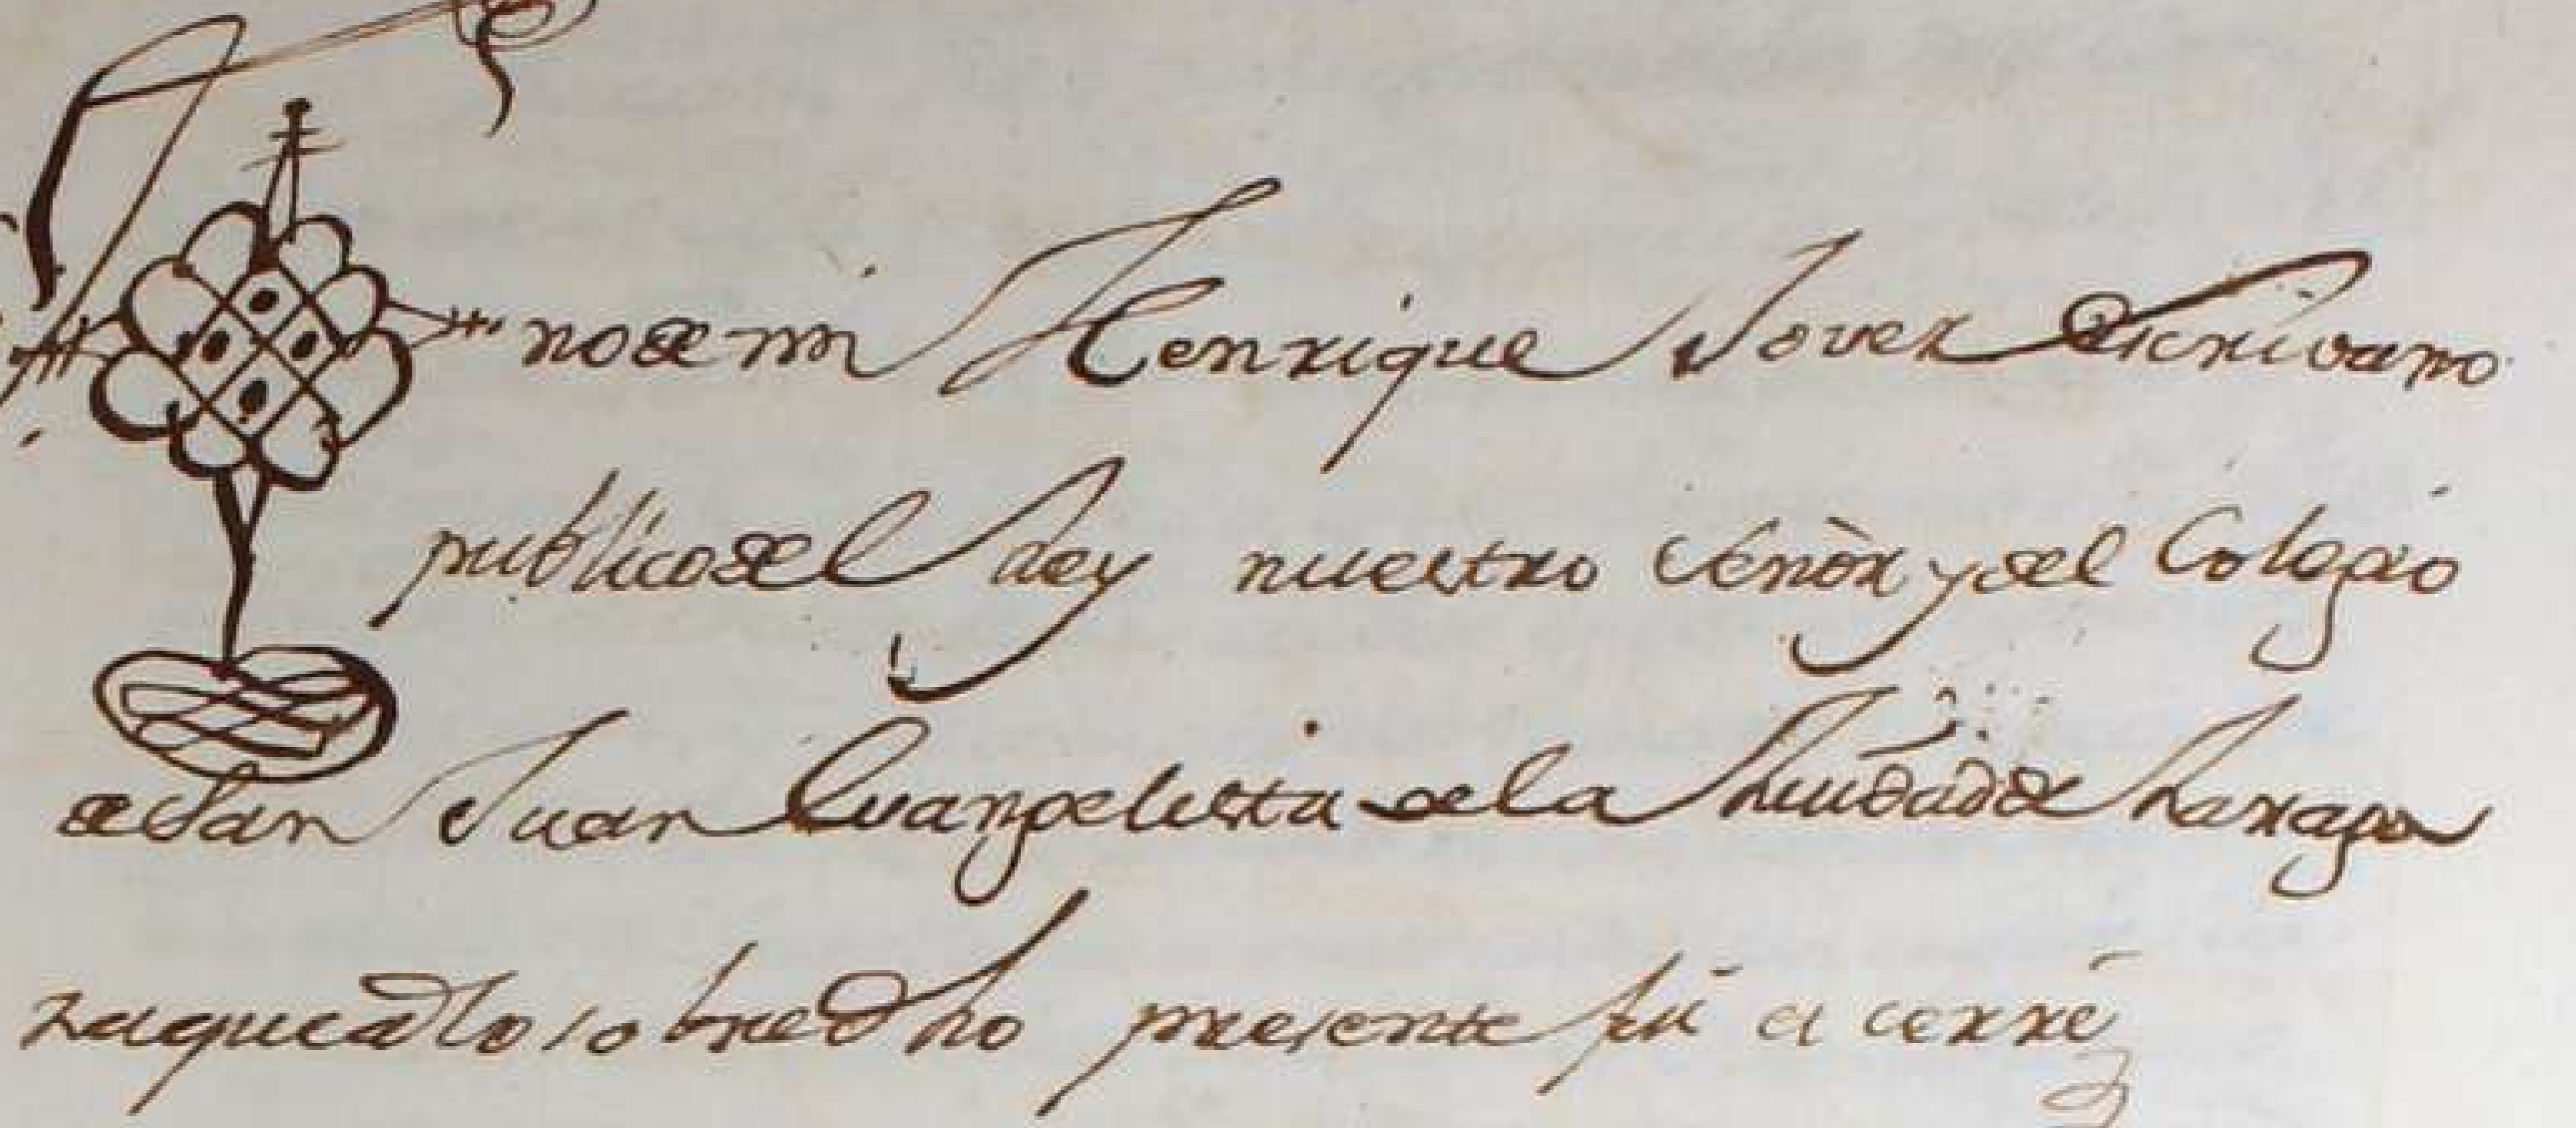 no de mi Henrique Jover Escrivano
publico del Rey nuestro Señor y del Colegio
de San Juan Evangelista de la Ciudad de Zarago
za que a lo sobre dho presente fui et cerré